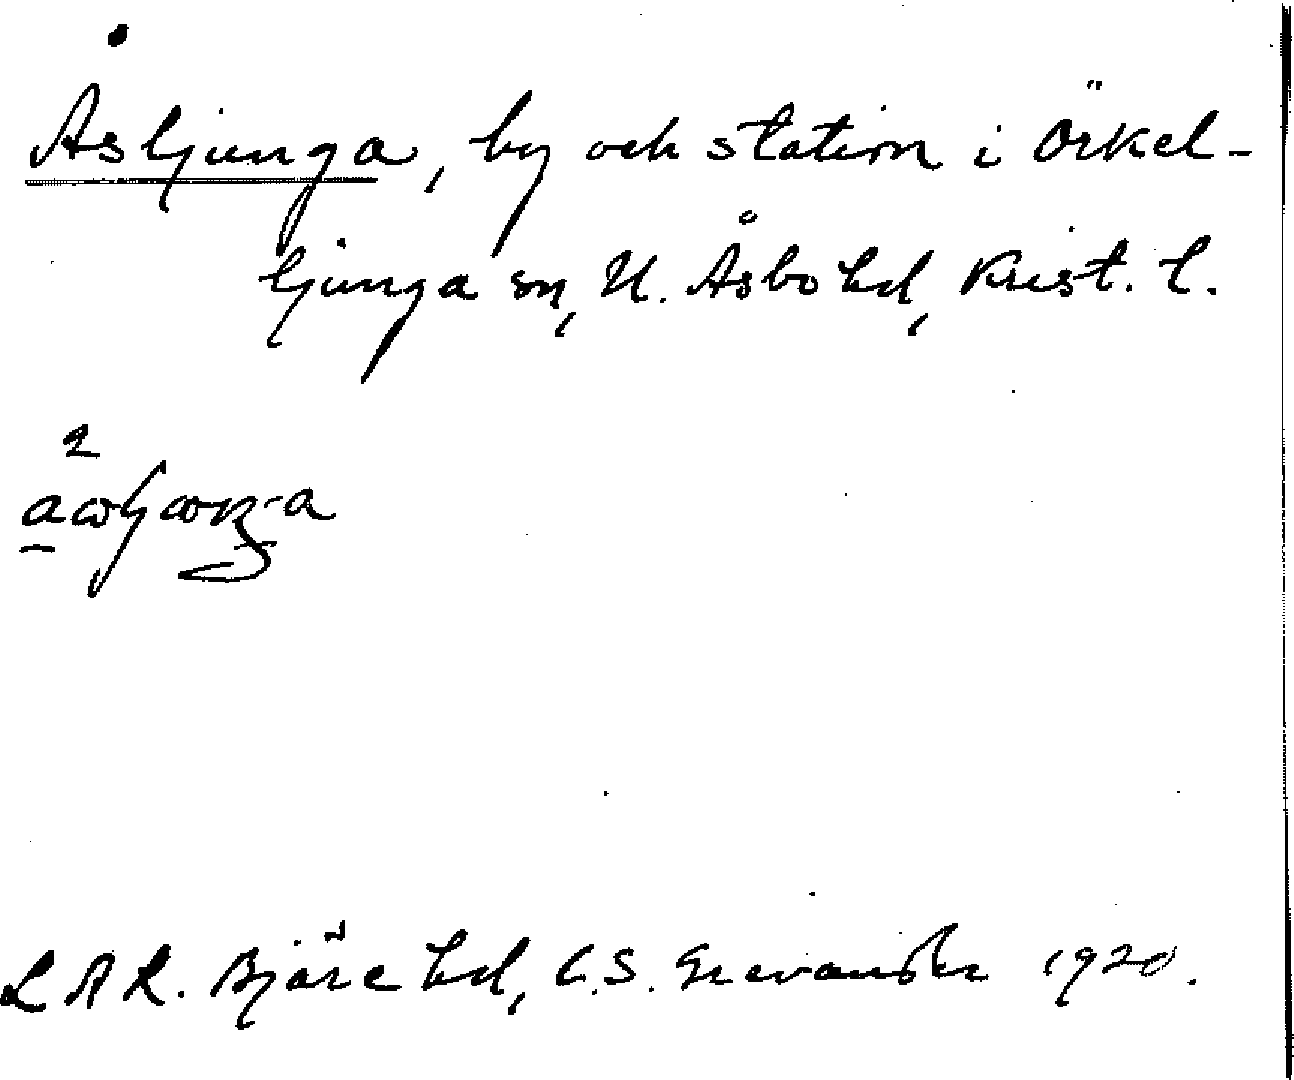 Åsljunga, by och station i Örkel-
ljunga sn, N. Åsbo hd, Krist. l.
LAL. Bjäre hd, C.S. Grevander 1920.